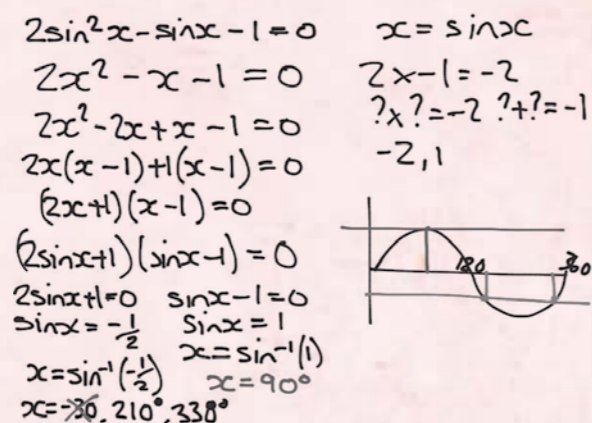 2sin²x-sinx-1=0
2x²-x-1=0
2x²-2x+x-1=0
2x(x-1)+1(x-1)=0
(2x+1)(x-1)=0
(2sinx+1)(sinx-1)=0
2sinx+1=0 sinx-1=0
sinx=-1/2 sinx=1
x=sin⁻¹(-1/2) x=sin⁻¹(1)
x=90°
x=-30, 210°, 338°
x=sinx
2x-1=-2
?x?=-2 ?+?=-1
-2,1
180 360